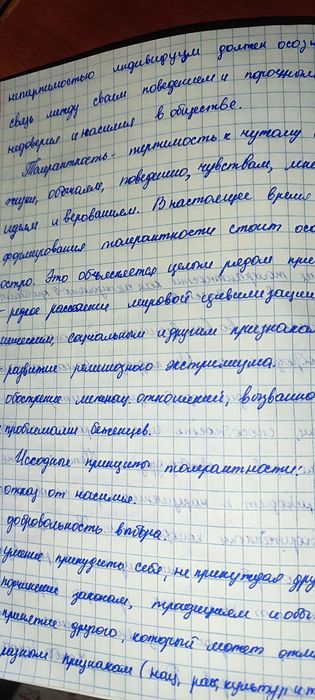 нетерпимостью индивидуум должен осозн
связь между своим поведением и порочным
недоверия и насилия в обществе.
Толерантность - терпимость к чужому о
жизни, обычаям, поведению, чувствам, мне
идеям и верованиям. В настоящее время
формирования толерантности стоит осо
остро. Это объясняется целым рядом прич
- резкое расслоение мировой цивилизации
ническим, социальным и другим признакам
- развитие религиозного экстремизма.
обострение межнац. отношений, вызванно
проблемами беженцев.
Исходные принципы толерантности:
отказ от насилия.
добровольность выбора
умение принудить себя, не принуждая дру
подчинение законам, традициям и обы
принятие другого, который может отли
разным признакам (нац, рас, культур и т